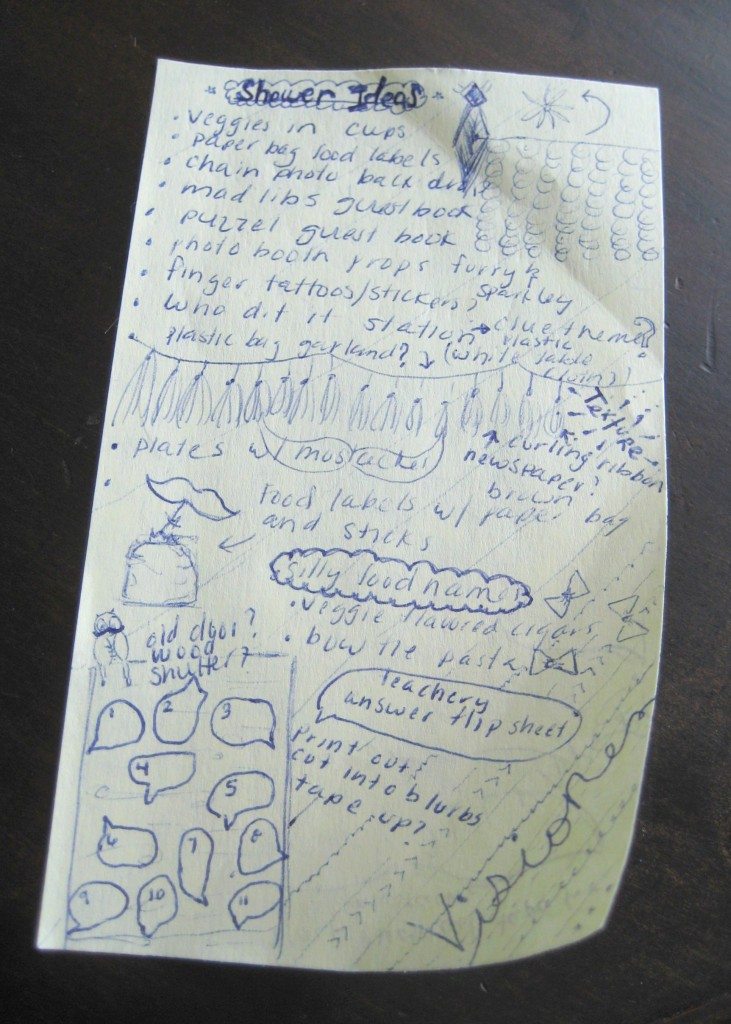 Shower Ideas
• veggies in cups
• paper bag food labels
• chain photo back drop
• mad libs guest book
• puzzel guest book
• photo booth props furry &
sparkley
• finger tattoos/stickers?
• who dit it station → clue theme?
• plastic bag garland? (white plastic
Texture
curling ribbon
newspaper?
brown bag
• plates w/ mustaches
Food labels w/ paper
and sticks
silly food names
• veggie flavored cigars
• bow tie pasta
old door?
wood
shutter?
Teachery
answer flip sheet
print out
cut into blurbs
tape up?
1
2
3
4
5
6
7
8
9
10
11
Visiones